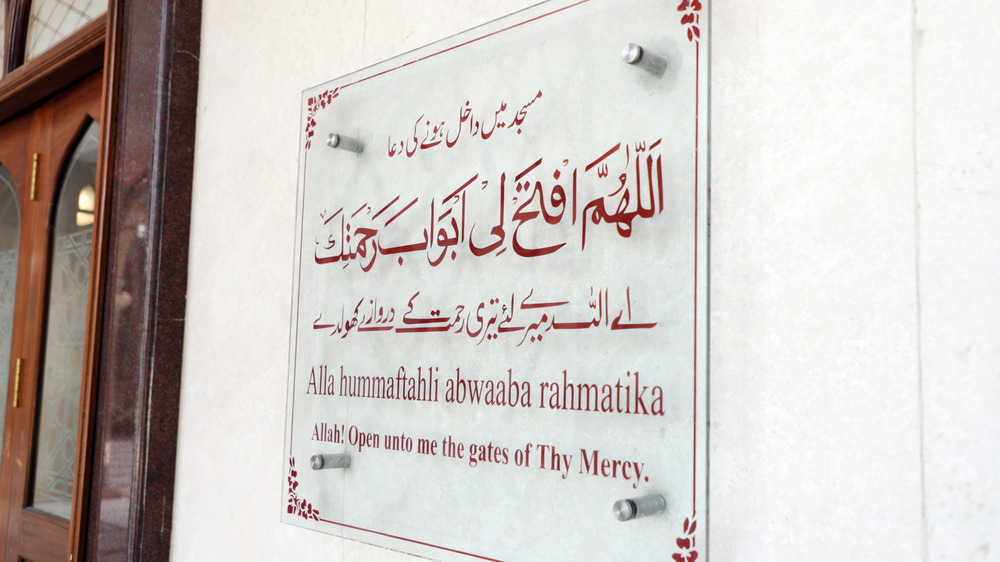 مسجد میں داخل ہونے کی دعا
اَللّٰهُمَّ افْتَحْ لِیْ اَبْوَابَ رَحْمَتِكَ
اے اللہ میرے لئے تیری رحمت کے دروازے کھولدے
Alla hummaftahli abwaaba rahmatika
Allah! Open unto me the gates of Thy Mercy.